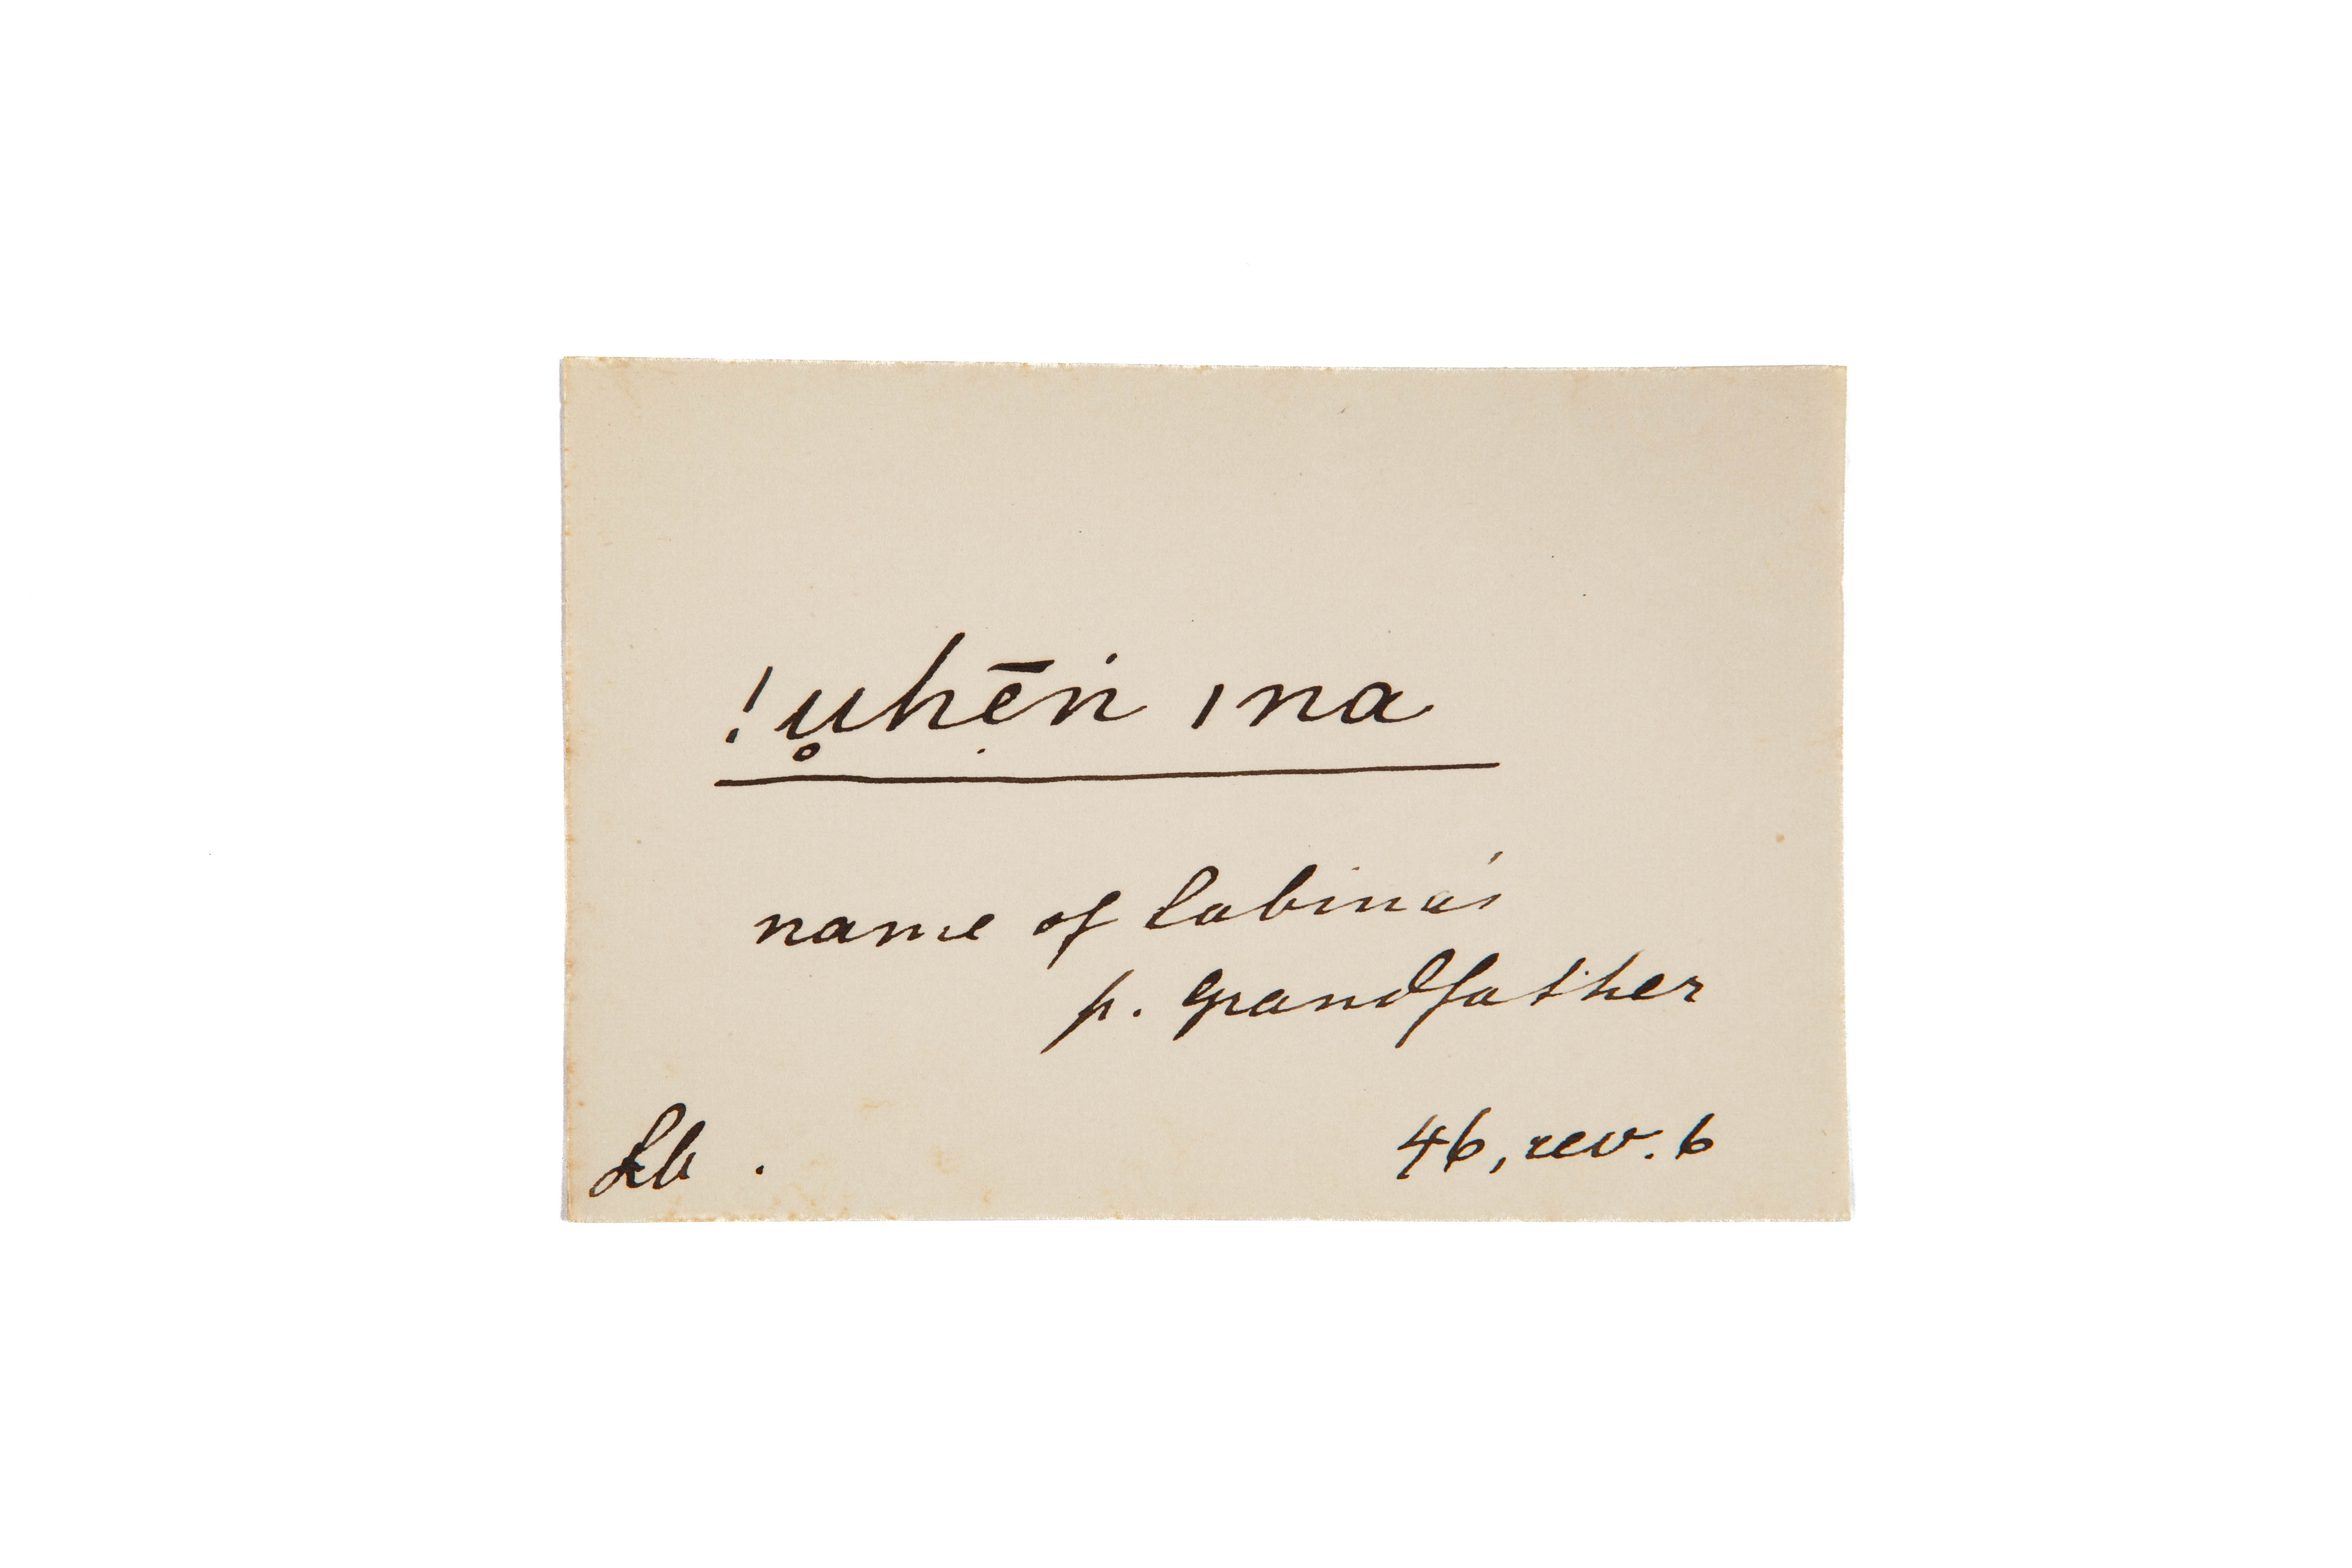 !u̥hẹ̄ṅ ına
name of Labina's
p. Grandfather
Lb .
46, rev. 6